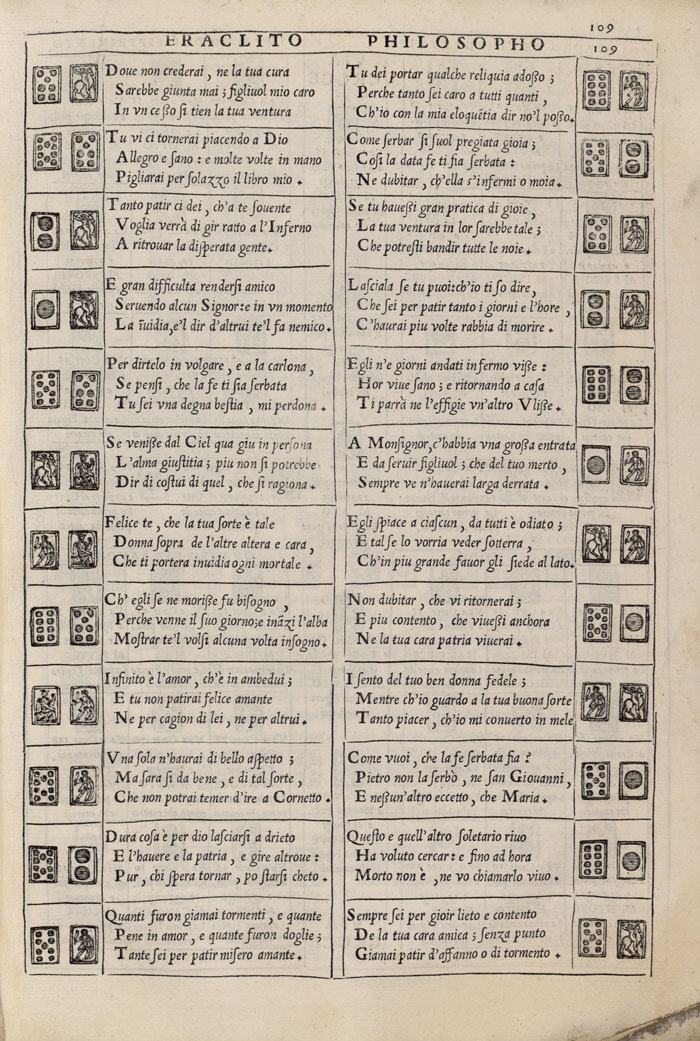 109
ERACLITO PHILOSOPHO
109
Doue non crederai, ne la tua cura
Sarebbe giunta mai; figliuol mio caro
In vn ceßo si tien la tua ventura
Tu vi ci tornerai piacendo a Dio
Allegro e sano: e molte volte in mano
Pigliarai per solazzo il libro mio.
Tanto patir ci dei, ch'a te souente
Voglia verrà di gir ratto a l'Inferno
A ritrouar la disperata gente.
E gran difficulta rendersi amico
Seruendo alcun Signor: e in vn momento
La īuidia, e'l dir d'altrui te'l fa nemico.
Per dirtelo in volgare, e a la carlona,
Se pensi, che la fe ti sia serbata
Tu sei vna degna bestia, mi perdona.
Se veniße dal Ciel qua giu in persona
L'alma giustitia; piu non si potrebbe
Dir di costui di quel, che si ragiona.
Felice te, che la tua sorte è tale
Donna sopra de l'altre altera e cara,
Che ti portera inuidia ogni mortale.
Ch' egli se ne moriße fu bisogno,
Perche venne il suo giorno; e inãzi l'alba
Mostrar te'l volsi alcuna volta insogno.
Infinito è l'amor, ch'è in ambedui;
E tu non patirai felice amante
Ne per cagion di lei, ne per altrui.
Vna sola n'haurai di bello aspetto;
Ma sara si da bene, e di tal sorte,
Che non potrai temer d'ire a Cornetto.
Dura cosa è per dio lasciarsi a drieto
E l'hauere e la patria, e gire altroue:
Pur, chi spera tornar, po starsi cheto.
Quanti furon giamai tormenti, e quante
Pene in amor, e quante furon doglie;
Tante sei per patir misero amante.
Tu dei portar qualche reliquia adoßo;
Perche tanto sei caro a tutti quanti,
Ch'io con la mia eloquētia dir no'l poßo.
Come serbar si suol pregiata gioia;
Cosi la data fe ti fia serbata:
Ne dubitar, ch'ella s'infermi o moia.
Se tu haueßi gran pratica di gioie,
La tua ventura in lor sarebbe tale;
Che potresti bandir tutte le noie.
Lasciala se tu puoi: ch'io ti so dire,
Che sei per patir tanto i giorni e l'hore,
C'haurai piu volte rabbia di morire.
Egli n'e giorni andati infermo viße:
Hor viue sano; e ritornando a casa
Ti parrà ne l'effigie vn'altro Vliße.
A Monsignor, c'habbia vna großa entrata
E da seruir figliuol; che del tuo merto,
Sempre ve n'hauerai larga derrata.
Egli spiace a ciascun, da tutti è odiato;
E tal se lo vorria veder sotterra,
Ch'in piu grande fauor gli siede al lato.
Non dubitar, che vi ritornerai;
E piu contento, che viuesti anchora
Ne la tua cara patria viuerai.
I sento del tuo ben donna fedele;
Mentre ch'io guardo a la tua buona sorte
Tanto piacer, ch'io mi conuerto in mele
Come vuoi, che la fe serbata sia?
Pietro non la serbò, ne san Giouanni,
E neßun'altro eccetto, che Maria.
Questo e quell'altro soletario riuo
Ha voluto cercar: e fino ad hora
Morto non è, ne vo chiamarlo viuo.
Sempre sei per gioir lieto e contento
De la tua cara amica; senza punto
Giamai patir d'affanno o di tormento.